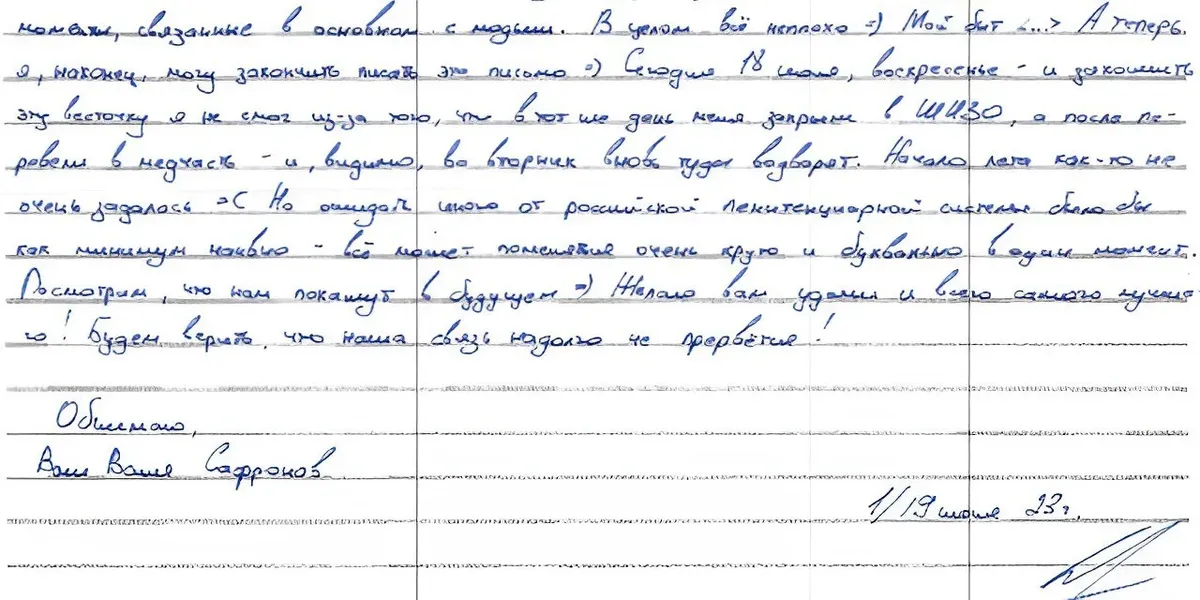 моменты, связанные в основном с людьми. В целом всё неплохо =) Мой быт <...> А теперь
я, наконец, могу закончить писать это письмо =) Сегодня 18 июня, воскресенье - и закончить
эту весточку я не смог из-за того, что в тот же день меня закрыли в ШИЗО, а после пе-
ревели в медчасть - и, видимо, во вторник вновь туда водворят. Начало лета как-то не
очень задалось =С Но ожидать иного от российской пенитенциарной системы было бы
как минимум наивно - всё может поменяться очень круто и буквально в один момент.
Посмотрим, что нам покажут в будущем =) Желаю вам удачи и всего самого лучше-
го! Будем верить, что наша связь надолго не прервётся!
Обнимаю,
Ваш Ваня Сафронов
1/19 июня 23 г.